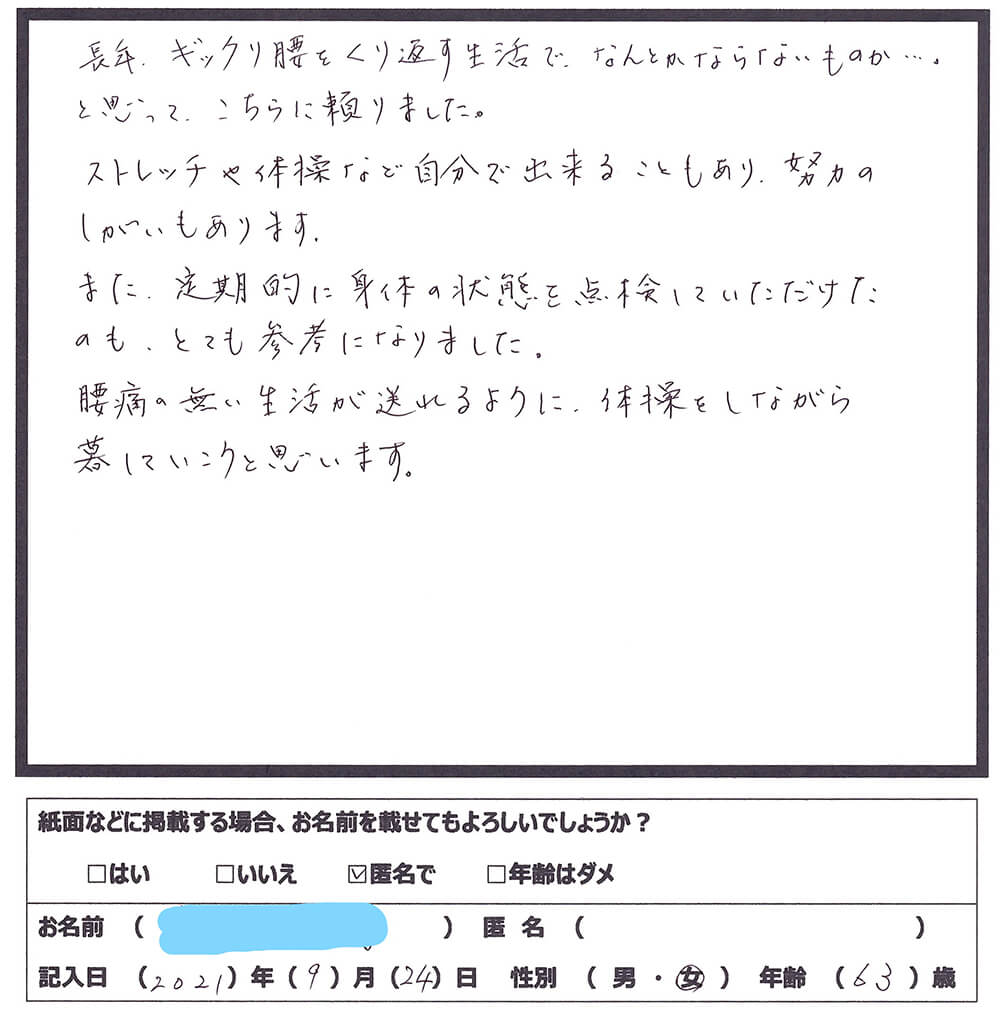 長年、ギックリ腰をくり返す生活で、なんとかならないものか…。
と思って、こちらに頼りました。
ストレッチや体操など自分で出来ることもあり、努力の
しがいもあります。
また、定期的に身体の状態を点検していただけた
のも、とても参考になりました。
腰痛の無い生活が送れるように、体操をしながら
暮していこうと思います。
紙面などに掲載する場合、お名前を載せてもよろしいでしょうか？
□はい □いいえ ☑匿名で □年齢はダメ
お名前 （ ） 匿 名 （ ）
記入日 （2021）年（9）月（24）日 性別 （ 男 ・ 女 ） 年齢 （63）歳